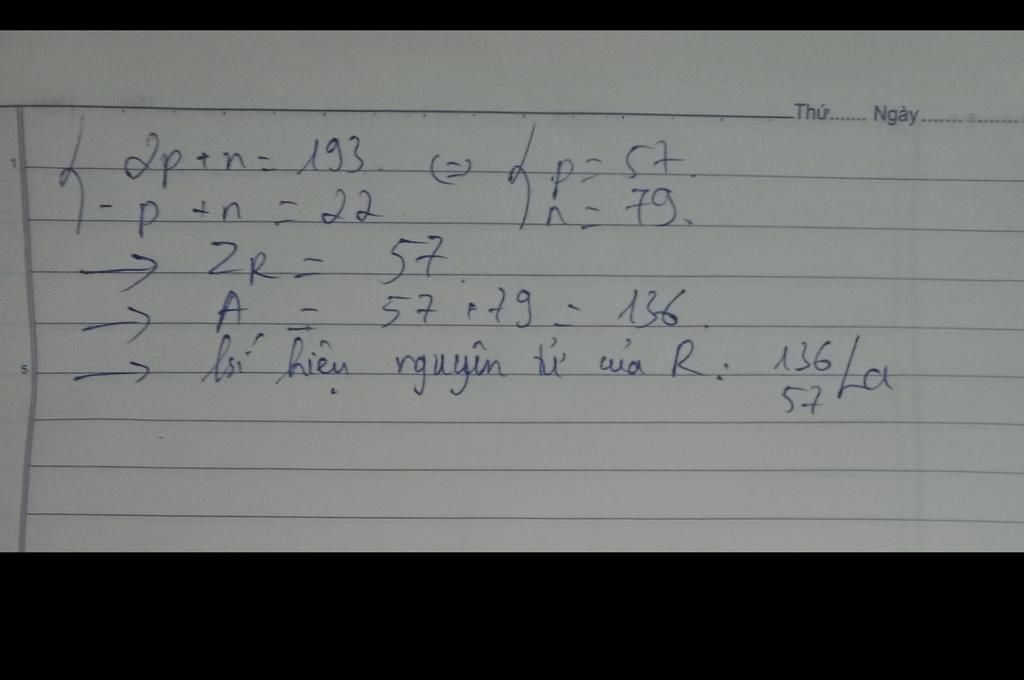 Thứ....... Ngày...................
2p + n = 193 <=> { p = 57
{ - p + n = 22 n = 79.
→ ZR = 57
→ A = 57 + 79 = 136
→ kí hiệu nguyên tử của R: 136 La
57
1
5